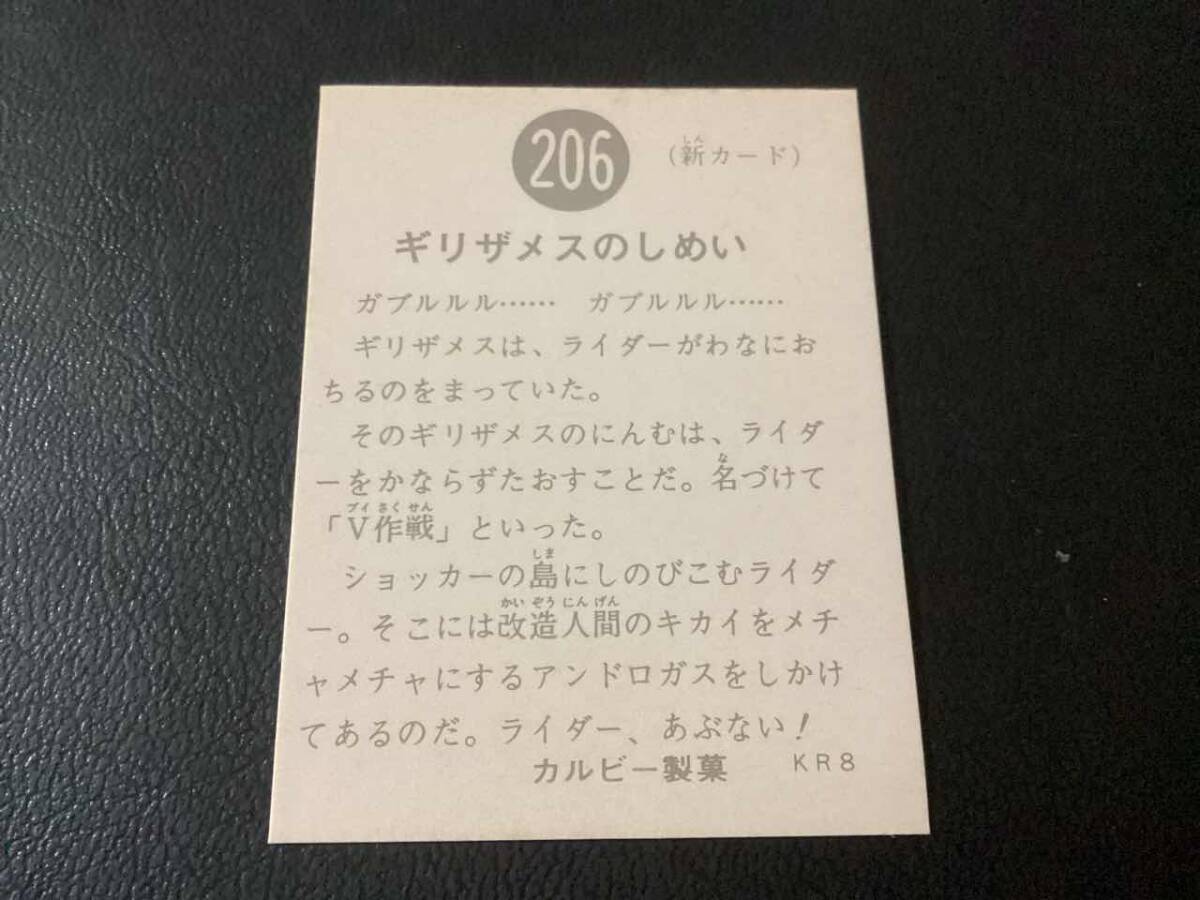 206
(新カード)
しん
ギリザメスのしめい
ガブルルル…… ガブルルル……
ギリザメスは、ライダーがわなにお
ちるのをまっていた。
そのギリザメスのにんむは、ライダ
ーをかならずたおすことだ。名づけて
な
「V作戦」といった。
ブイ さく せん
ショッカーの島にしのびこむライダ
しま
ー。そこには改造人間のキカイをメチ
かい ぞう にん げん
ャメチャにするアンドロガスをしかけ
てあるのだ。ライダー、あぶない!
カルビー製菓 KR8